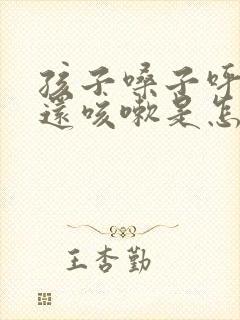 孩子嗓子呼
還咳嗽是怎
王杏勤